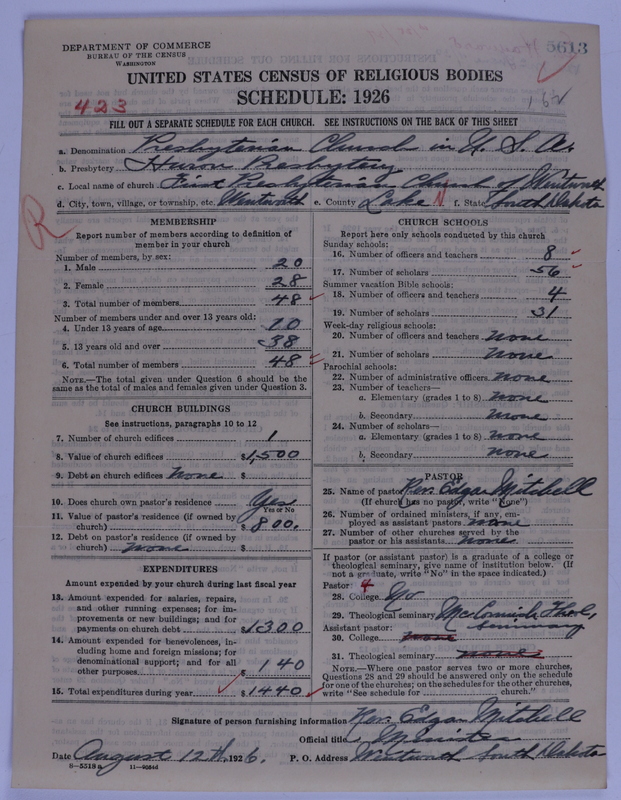 5613
DEPARTMENT OF COMMERCE
BUREAU OF THE CENSUS
WASHINGTON
UNITED STATES CENSUS OF RELIGIOUS BODIES
SCHEDULE: 1926
423
162
FILL OUT A SEPARATE SCHEDULE FOR EACH CHURCH. SEE INSTRUCTIONS ON THE BACK OF THIS SHEET
a. Denomination Presbyterian Church in U. S. A.
b. Presbytery Huron Presbytery
c. Local name of church First Presbyterian Church of Wentworth
d. City, town, village, or township, etc. Wentworth e. County Lake N f. State South Dakota
R
MEMBERSHIP
Report number of members according to definition of
member in your church
Number of members, by sex:
1. Male 20
2. Female 28
3. Total number of members 48
Number of members under and over 13 years old:
4. Under 13 years of age 10
5. 13 years old and over 38
6. Total number of members 48
NOTE.—The total given under Question 6 should be the
same as the total of males and females given under Question 3.
CHURCH BUILDINGS
See instructions, paragraphs 10 to 12
7. Number of church edifices 1
8. Value of church edifices $1,500
9. Debt on church edifices None $
10. Does church own pastor's residence Yes
Yes or No
11. Value of pastor's residence (if owned by
church) $800.
12. Debt on pastor's residence (if owned by
church) none $
EXPENDITURES
Amount expended by your church during last fiscal year
13. Amount expended for salaries, repairs,
and other running expenses; for im-
provements or new buildings; and for
payments on church debt $1300
14. Amount expended for benevolences, in-
cluding home and foreign missions; for
denominational support; and for all
other purposes $140
15. Total expenditures during year $1440
CHURCH SCHOOLS
Report here only schools conducted by this church
Sunday schools:
16. Number of officers and teachers 8
17. Number of scholars 56
Summer vacation Bible schools:
18. Number of officers and teachers 4
19. Number of scholars 31
Week-day religious schools:
20. Number of officers and teachers none
21. Number of scholars none
Parochial schools:
22. Number of administrative officers none
23. Number of teachers—
a. Elementary (grades 1 to 8) none
b. Secondary none
24. Number of scholars—
a. Elementary (grades 1 to 8) none
b. Secondary none
PASTOR
25. Name of pastor Rev. Edgar Mitchell
(If church has no pastor, write "None")
26. Number of ordained ministers, if any, em-
ployed as assistant pastors none
27. Number of other churches served by the
pastor or his assistants none
If pastor (or assistant pastor) is a graduate of a college or
theological seminary, give name of institution below. (If
not a graduate, write "No" in the space indicated.)
Pastor: 4
28. College No
29. Theological seminary McCormick Theol.
Assistant pastor: seminary
30. College none
31. Theological seminary none
NOTE.—Where one pastor serves two or more churches,
Questions 28 and 29 should be answered only on the schedule
for one of the churches; on the schedules for the other churches,
write "See schedule for church."
Signature of person furnishing information Rev. Edgar Mitchell
Official title Minister
Date August 12th, 1926. P. O. Address Wentworth South Dakota
8—5518a 11—9084d